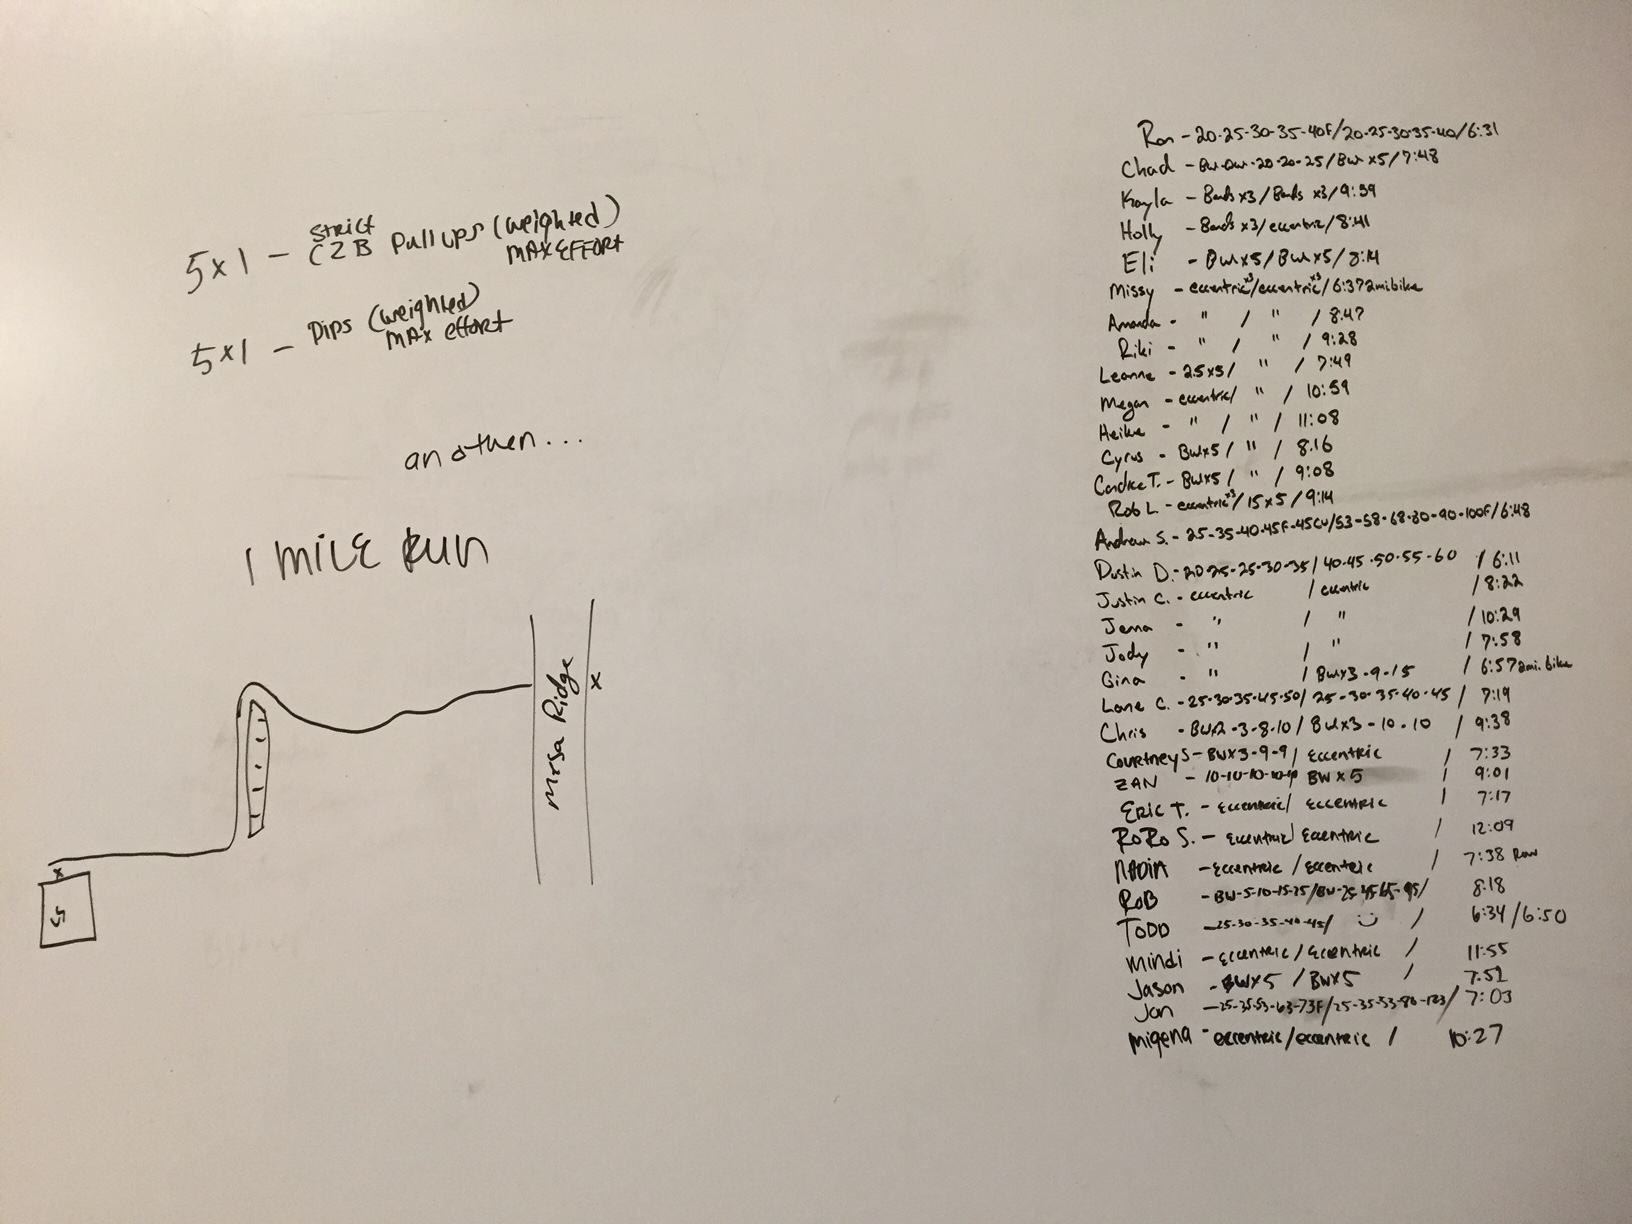 5x1 - STRICT C2B Pull ups (weighted) MAX EFFORT
5x1 - Dips (weighted) MAX effort
an othen...
1 MILE RUN
Missa Ridge
x
x
Ron - 20-25-30-35-40F/20-25-30-35-40/6:31
Chad - BW-BW-20-20-25/BW x5/7:48
Kayla - Bands x3/Bands x3/9:59
Holly - Bands x3/eccentric/8:41
Eli - BWx5/BWx5/8:14
Missy - eccentric x3/eccentric x3/6:37 2mi bike
Amanda - " / " / 8:47
Riki - " / " / 9:28
Leanne - 2.5x5/ " / 7:49
Megan - eccentric/ " / 10:59
Heike - " / " / 11:08
Cyrus - BWx5/ " / 8:16
Candice T. - BWx5/ " / 9:08
Rob L. - eccentric x3/15x5/9:14
Andrew S. - 25-35-40-45F-45CU/53-58-68-80-90-100F/6:48
Dustin D. - 20-25-25-30-35/40-45-50-55-60 / 6:11
Justin C. - eccentric / eccentric / 8:22
Jenna - " / " / 10:29
Jody - " / " / 7:58
Gina - " / BWx3-9-15 / 6:57 2mi. bike
Lane C. - 25-30-35-45-50/25-30-35-40-45 / 7:19
Chris - BWx2-3-8-10/BWx3-10-10 / 9:38
Courtney S - BWx3-9-9/ Eccentric / 7:33
ZAN - 10-10-10-10-10 BWx5 / 9:01
ERIC T. - Eccentric/ ECCENTRIC / 7:17
RoRo S. - Eccentric/ Eccentric / 12:09
NADIA - Eccentric / Eccentric / 7:38 Row
RoB - BW-5-10-15-25/BW-25-45-65-95/ 8:18
TODD - 25-30-35-40-45/ / 6:34/6:50
Mindi - Eccentric / Eccentric / 11:55
Jason - BWx5 / BWx5 / 7:51
Jon - 25-35-53-63-73F/25-35-53-80-123/ 7:03
Migena - eccentric/eccentric / 10:27